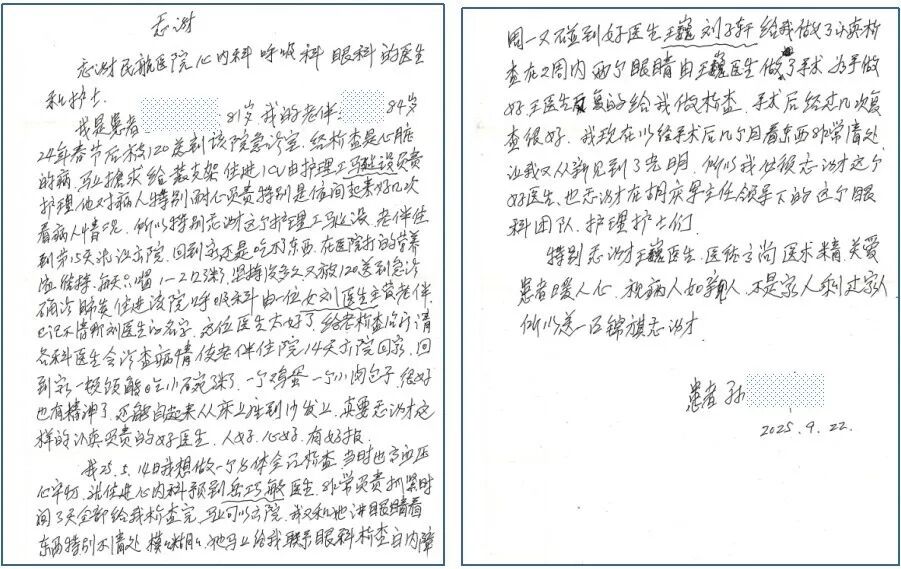 感谢
感谢民航医院心内科 呼吸科 眼科的医生
和护士.
我是患者 81岁 我的老伴 84岁
24年春节后被120送到该院急诊室. 经检查是心脏
的病. 马上抢求给装支架 住进ICU由护理工马 负责
护理. 他对病人特别耐心负责特别是夜间起来好几次
看病人情况. 所以特别感谢这个护理工马 老伴住
到第15天 出院. 回到家还是吃不东西. 在医院打的营养
液维持. 每天只喝1一2口粥. 坚持没多久又被120送到急诊
确诊肺炎住进该院呼吸科由一位女刘医生主管老伴.
记不清那刘医生的名字. 这位医生太好了. 给老 检查治疗请
各科医生会诊查病情使老伴住院14天出院回家. 回
到家一顿饭能吃小碗粥. 一个鸡蛋一个小肉包子 很好
也有精神了. 还能自起来从床上走到沙发上. 真要感谢这
样的认真负责的好医生. 人好. 心好. 有好报.
我25.5.14日我想做一个身体全 检查. 当时也高血压
心 就住进心内科 到岳巧敏医生. 非常负责抓紧时
间3天全部给我检查完. 马上可以出院. 我又和她讲眼睛看
东西特别不清处 模模糊糊. 她马上给我联系眼科检查白内障
周一又 碰到好医生王巍 刘子轩 给我做了认真检
查在2周内 两个眼睛由王巍医生做了手术 为手做
好. 王医生反复的给我做检查. 手术后经过几次复
查很好. 我现在 经手术后几个月看东西非常清处
让我又从新见到了光明. 所以我 很感谢这个
好医生. 也感谢在胡 主任领导下的这个眼
科团队. 护理护士们
特别感谢王巍医生. 医德高尚 医术精 关爱
患者 暖人心. 视病人如亲人. 不是家人 家人
所以送一面锦旗感谢
患者 孙
2025.9.22.